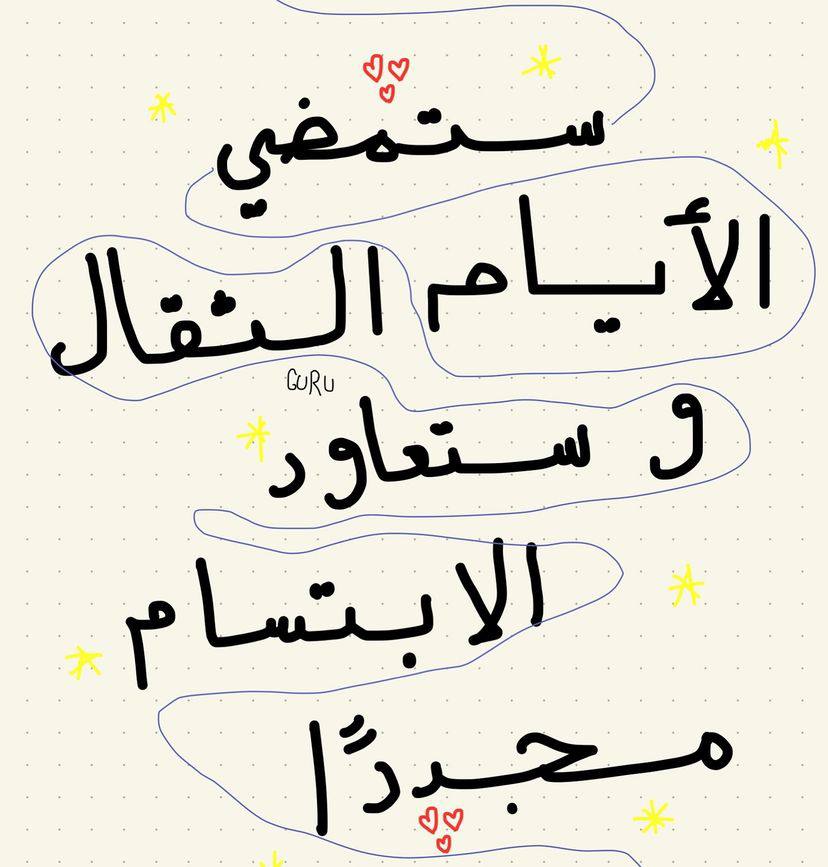 ستمضي
الأيام الثقال
GURU
و ستعاود
الابتسام
مجددًا